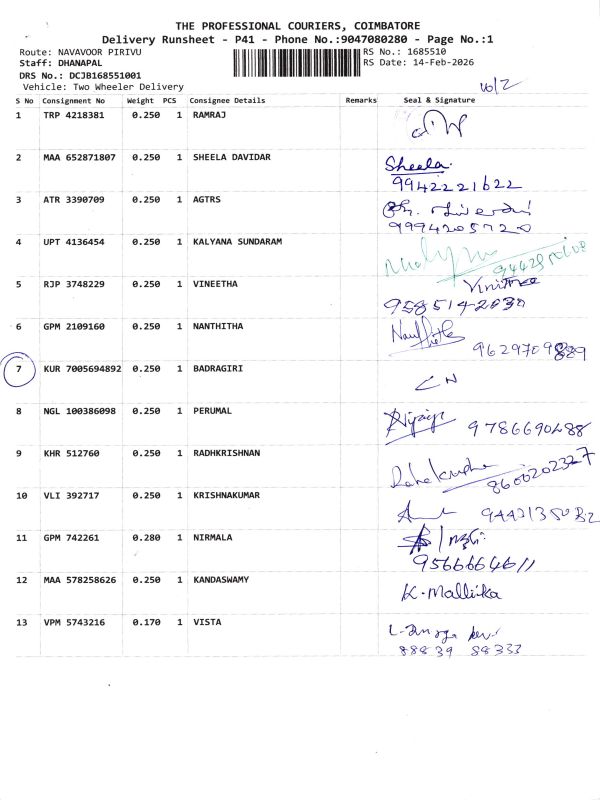 THE PROFESSIONAL COURIERS, COIMBATORE
Delivery Runsheet - P41 - Phone No.:9047080280 - Page No.:1
Route: NAVAVOOR PIRIVU RS No.: 1685510
Staff: DHANAPAL RS Date: 14-Feb-2026
DRS No.: DCJB168551001
Vehicle: Two Wheeler Delivery 16/2
S No Consignment No Weight PCS Consignee Details Remarks Seal & Signature
1 TRP 4218381 0.250 1 RAMRAJ
2 MAA 652871807 0.250 1 SHEELA DAVIDAR Sheela.
9942221622
3 ATR 3390709 0.250 1 AGTRS
9994205720
4 UPT 4136454 0.250 1 KALYANA SUNDARAM
5 RJP 3748229 0.250 1 VINEETHA
9585142030
6 GPM 2109160 0.250 1 NANTHITHA
7 KUR 7005694892 0.250 1 BADRAGIRI CN
8 NGL 100386098 0.250 1 PERUMAL 9786690488
9 KHR 512760 0.250 1 RADHKRISHNAN
8600202327
10 VLI 392717 0.250 1 KRISHNAKUMAR
11 GPM 742261 0.280 1 NIRMALA
9566664611
12 MAA 578258626 0.250 1 KANDASWAMY K. Mallika
13 VPM 5743216 0.170 1 VISTA
88839 88333